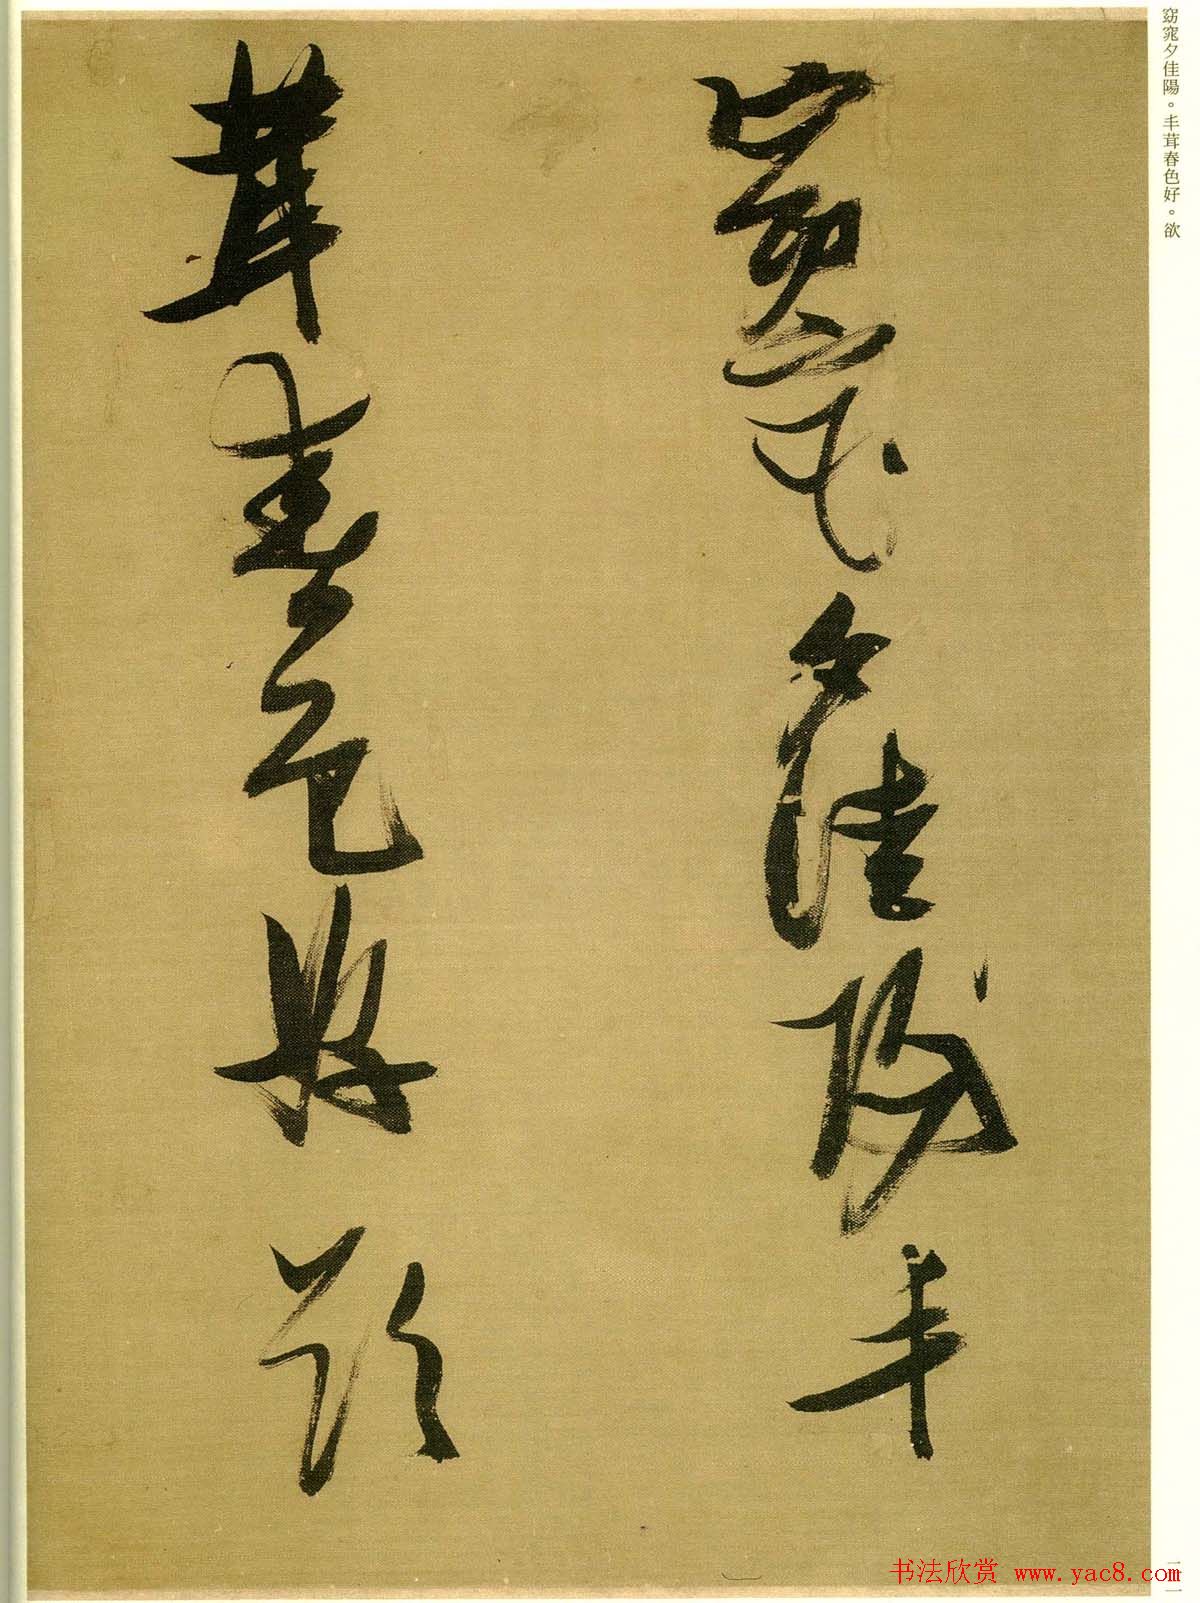 窈窕夕佳陽。丰茸春色好。欲
窈窕夕佳陽丰
茸春色好欲
二一
书法欣赏 www.yac8.com